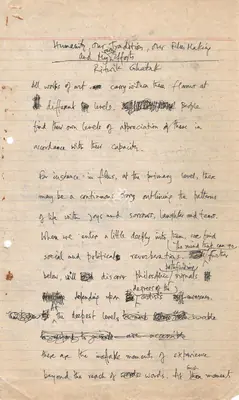 Humanity, Our Tradition, Our Film Making
and My Efforts
Ritwik Ghatak
All works of art carry within them flavour at
different levels. People
find their own levels of appreciation of them in
accordance with their capacity.
For instance in films, at the primary level, there
may be a continuous story outlining the patterns
of life with joys and sorrows, laughter and tears.
When we enter a little deeply into them we find
social and political reverberations
the mind that can go further
below, will discover philosophical signals
depending upon artist's
At the deepest level,
there are the ineffable moment of experience
beyond the reach of words. At such moment